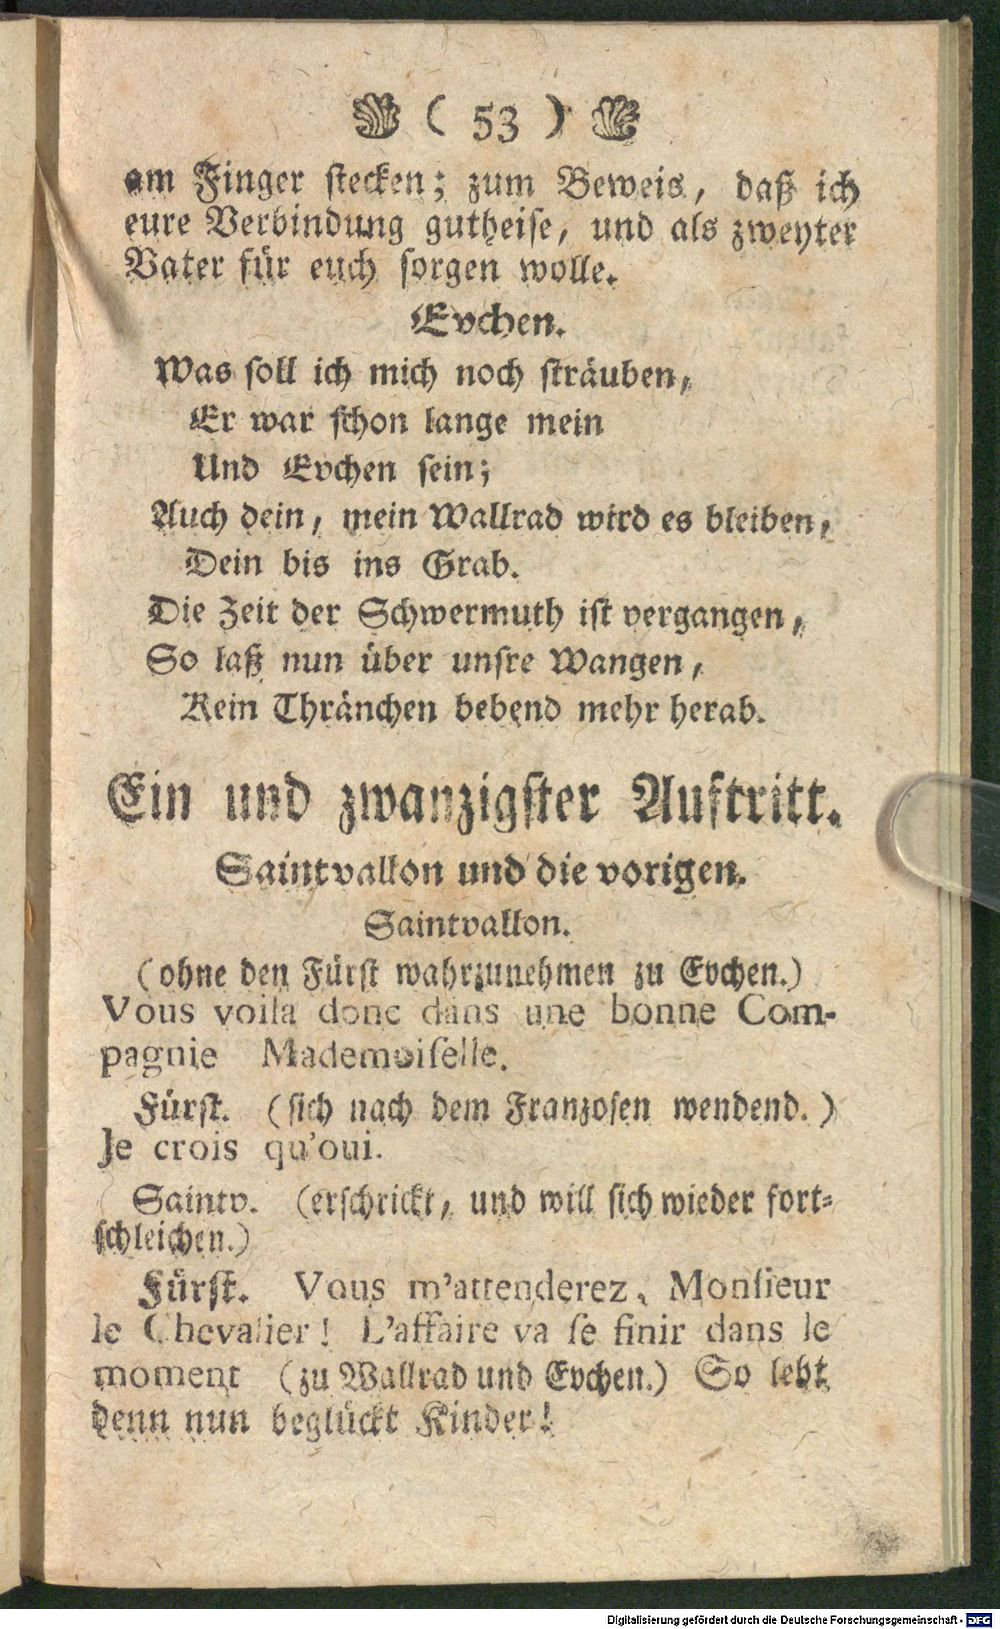 ( 53 )
am Finger stecken; zum Beweis, daß ich
eure Verbindung gutheise, und als zweyter
Vater für euch sorgen wolle.
Evchen.
Was soll ich mich noch sträuben,
Er war schon lange mein
Und Evchen sein;
Auch dein, mein Wallrad wird es bleiben,
Dein bis ins Grab.
Die Zeit der Schwermuth ist vergangen,
So laß nun über unsre Wangen,
Kein Thränchen bebend mehr herab.
Ein und zwanzigster Auftritt.
Saintvallon und die vorigen.
Saintvallon.
(ohne den Fürst wahrzunehmen zu Evchen.)
Vous voila donc dans une bonne Com-
pagnie Mademoiselle.
Fürst. (sich nach dem Franzosen wendend.)
Je crois qu'oui.
Saintv. (erschrickt, und will sich wieder fort-
schleichen.)
Fürst. Vous m'attenderez, Monsieur
le Chevalier! L'affaire va se finir dans le
moment (zu Wallrad und Evchen.) So lebt
denn nun beglückt Kinder!
Digitalisierung gefördert durch die Deutsche Forschungsgemeinschaft - DFG